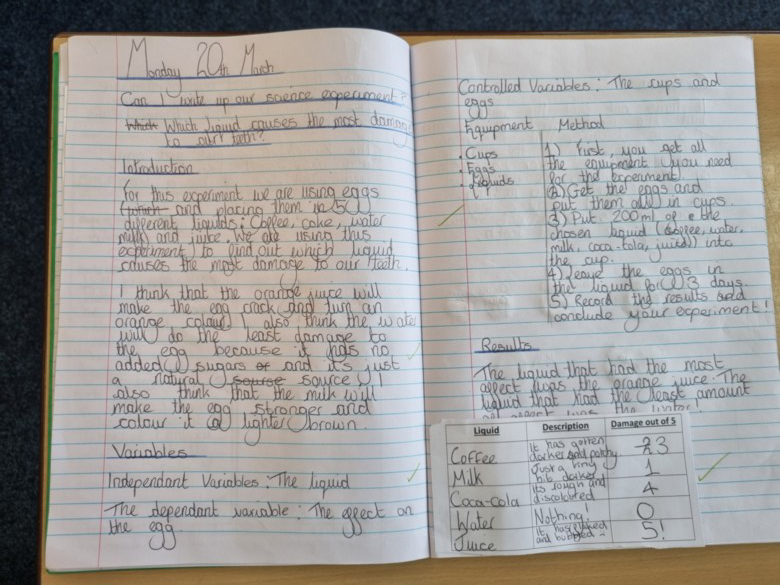 Monday 20th March
Can I write up our science experiment?
Which Which liquid causes the most damage
to our teeth?
Introduction
For this experiment we are using eggs
(which and placing them in 5
different liquids: Coffee, coke, water
milk and juice. We are using this
experiment to find out which liquid
causes the most damage to our teeth.
I think that the orange juice will
make the egg crack and turn an
orange colour. I also think the water
will do the least damage to
the egg because it has no
added sugars or and it's just
a natural sourse source. I
also think that the milk will
make the egg stronger and
colour it a lighter brown.
Variables
Independant Variables: The liquid
The dependant variable: The effect on
the egg
Controlled Variables: The cups and
eggs
Equipment
· Cups
· Eggs
· Liquids
Method
1) First, you get all
the equipment you need
for the experiment
2) Get the eggs and
put them all in cups.
3) Put 200ml of the
chosen liquid (coffee, water,
milk, coca-cola, juice) into
the cup.
4) Leave the eggs in
the liquid for 3 days.
5) Record the results and
conclude your experiment!
Results
The liquid that had the most
affect was the orange juice. The
liquid that had the least amount
of affect was the water!
Liquid Description Damage out of 5
Coffee It has gotten darker and patchy 3
Milk Just a tiny bit darker 1
Coca-Cola Its rough and discoloured 4
Water Nothing! 0
Juice It has and bubbled 5!